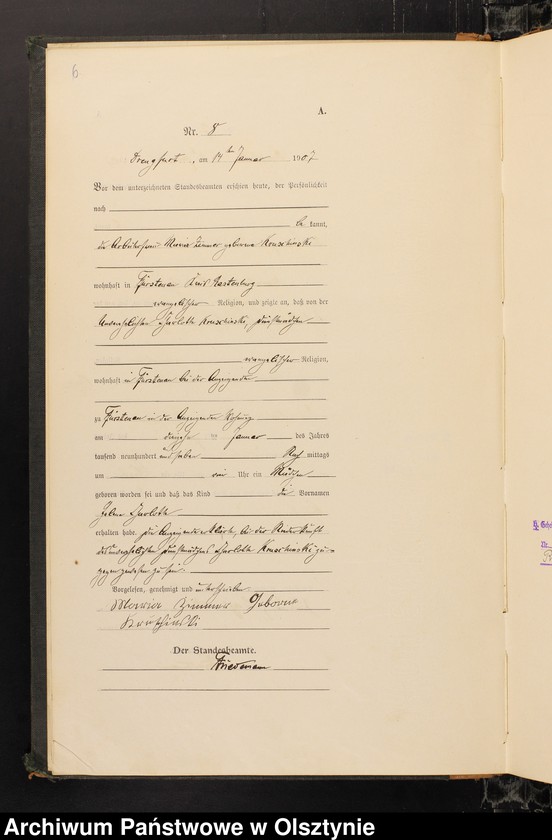 6
A.
Nr. 8
Drengfurt, am 14ten Januar 1907
Vor dem unterzeichneten Standesbeamten erschien heute, der Persönlichkeit
nach
be kannt,
die Arbeiterfrau Maria Zimmer geborene
wohnhaft in Fürstenau Kreis Rastenburg
evangelischer Religion, und zeigte an, daß von der
unverehelichten Charlotte Dienstmädchen
evangelischer Religion,
wohnhaft in Fürstenau bei der Anzeigenden
zu Fürstenau in der Anzeigenden Wohnung
am des Januar des Jahres
tausend neunhundert und sieben Nach mittags
um Uhr ein Mädchen
geboren worden sei und daß das Kind die Vornamen
Charlotte
erhalten habe. Die Anzeigende erklärte, bei der Niederkunft
der unverehelichten Dienstmädchens Charlotte zu-
gegen gewesen zu sein
Vorgelesen, genehmigt und unterschrieben
Maria Zimmer Geborene
Der Standesbeamte.
Archiwum Państwowe w Olsztynie